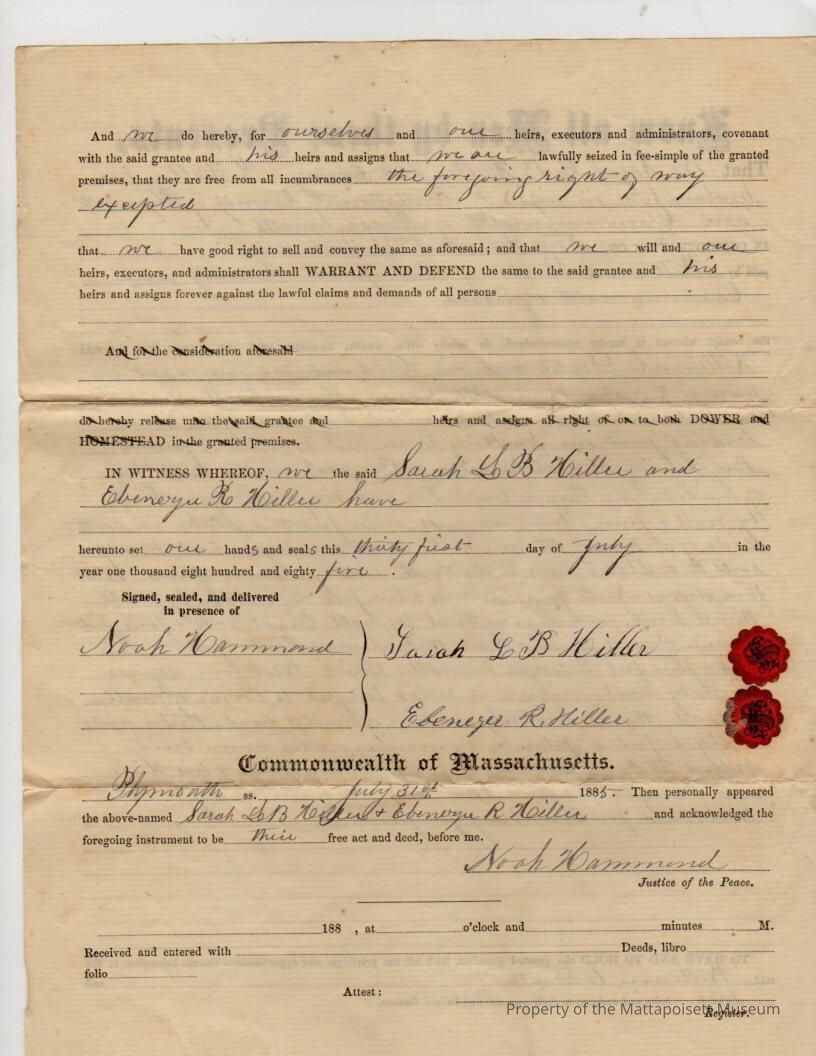 And we do hereby, for ourselves and our heirs, executors and administrators, covenant
with the said grantee and his heirs and assigns that we are lawfully seized in fee-simple of the granted
premises, that they are free from all incumbrances the forgoing right of way
excepted
that we have good right to sell and convey the same as aforesaid; and that we will and our
heirs, executors, and administrators shall WARRANT AND DEFEND the same to the said grantee and his
heirs and assigns forever against the lawful claims and demands of all persons
And for the consideration aforesaid
do hereby release unto the said grantee and heirs and assigns all right of or to both DOWER and
HOMESTEAD in the granted premises.
IN WITNESS WHEREOF, we the said Sarah L B Hiller and
Ebenezer R Hiller have
hereunto set our hands and seals this thirty first day of July in the
year one thousand eight hundred and eighty five.
Signed, sealed, and delivered
in presence of
Noah Hammond
Sarah L B Hiller
Ebenezer R. Hiller
Commonwealth of Massachusetts.
Plymouth ss. July 31st 1885. Then personally appeared
the above-named Sarah L B Hiller & Ebenezer R Hiller and acknowledged the
foregoing instrument to be their free act and deed, before me.
Noah Hammond
Justice of the Peace.
188 , at o'clock and minutes M.
Received and entered with Deeds, libro
folio
Attest:
Register.
Property of the Mattapoisett Museum